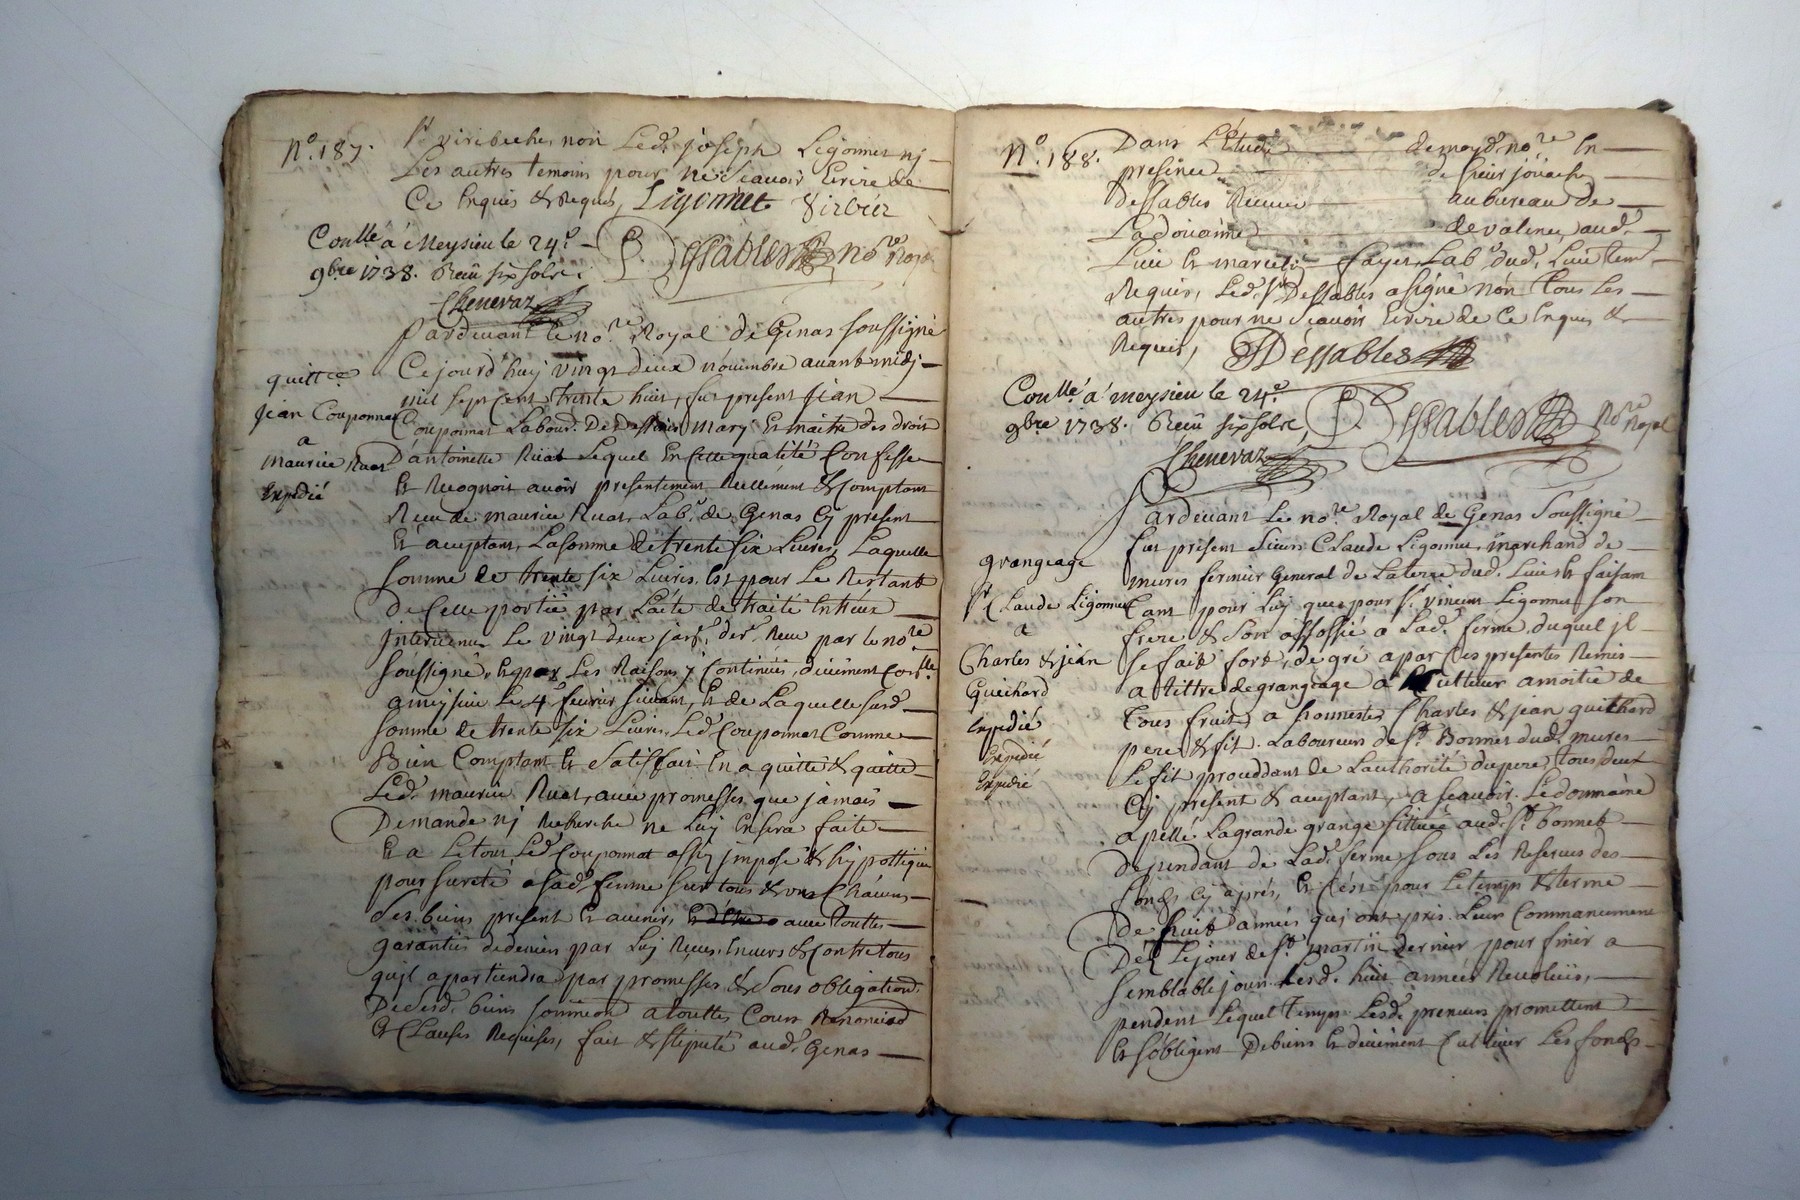 N.º 187.
Sr viribecke, non Led. joseph Ligonnet nj
Les autres temoins pour ne Scavoir Ecrire de
Ce Enquis & Requis, Ligonnet
Conllé á Meysieu le 24.e
9bre 1738. Reçû six sols.
Dessables Nore Royal
Chenevaz
Pardevant le nore Royal de Genas soussigné
Ce jourd'huy vingt deux novembre avant midj
mil sept Cent trente huit, fut present jean
Couponnat Labour. De mary Et maitre des droit
D'antoinette Ruat Lequel En Cette qualité Confesse
Et Recognoit avoir presentement Reellement & Comptant
Reçu de maurice Ruat, Labr. de Genas Cy present
Et aceptant, La somme de trente six Livres, Laquelle
somme de trente six Livres, Est pour Le Restant
De Celle portée par L'acte de traité Entreux
Intervenu Le vingt deux janr. derr. Receu par le nore
soussigné, Et par Les Raisons y Contenües, düement Conllé
a meysieu Le 4e fevrier suivant, Et de Laquelle susd.
somme de trente six Livres, Led. Couponnat Comme
Bien Comptant Et Satisfait En a quitté & quitte
Led. maurice Ruat, avec promesses que jamais
Demande nj Recherche ne Luy En sera faite
Et a Letout Led. Couponnat assis jmposé & hypottequé
pour sureté a sad. femme sur tous & uns Chacuns
Ses biens present Et avenir, avec touttes
garanties de deniers par Luy Reçus Envers & Contre tous
qu'jl apartiendra par promesses & sous obligations
De Sesd. biens soumission a touttes Cours Renonciaõ
Et Clauses Requises, fait & stipulé aud. Genas
quittce
Jean Couponnat
a
maurice Ruat
Expedié
N.º 188.
Dans L'Etude de moyd. nore En
presence de sieur
Dessables Receveur au bureau de
La doüanne de valence, aud.
Lieu Et Fayet Labr. dud. Lieu tem.
Requis, Led. Sr Dessables a signé non tous Les
autres pour ne Scavoir Ecrire de Ce Enquis &
Requis, Dessables
Conllé á meysieu le 24.e
9bre 1738. Reçû six sols,
Dessables Nore Royal
Chenevaz
Pardevant Le nore Royal de Genas Soussigné
fut present Sieur Claude Ligonnet, marchand de
mures fermier General de La terre dud. Lieu Et faisant
tant pour Luy que pour sr. vincent Ligonnet son
frere & son associé a Lad. ferme duquel jl
se fait fort, de gré a par Ces presentes Remis
a tittre de grangeage a moitié de
tous fruits a honnestes Charles & jean guichard
pere & fils Laboureurs de st. Bonnet dud. mures
Le fils proceddant de L'authorité du pere, tous deux
Cy present & aceptant, a scavoir Le domaine
apellé La grande grange sittuée aud. st. bonnet
dependant de Lad. ferme sous Les Reserves des
fonds Cy aprés, Et C'est pour Letemps & terme
De huit années qui ont pris Leur Commancement
Dez Lejour de st. martin dernier pour finir a
semblable jour Lesd. huit années Revoluës,
pendent Lequel temps Lesd. preneurs promettent
Et sobligent Debien Et düement Cultiver Les fonds
grangeage
Sr Claude Ligonnet
a
Charles & jean
Guichard
Expedié
Expedié
Expedié